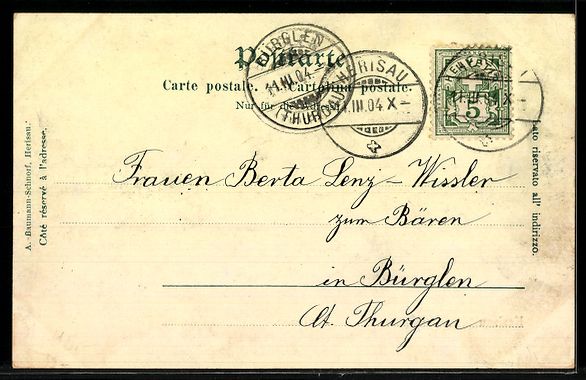 Postkarte.
Carte postale. Cartolina postale.
Nur für die
BÜRGLEN
11.III.04
(THURGAU)
HERISAU
1.III.04 X
5
A. Baumann-Schnorf, Herisau.
Côté réservé à l'adresse.
riservato all' indirizzo.
Frauen Berta Lenz-Wissler
zum Bären
in Bürglen
Ct. Thurgau